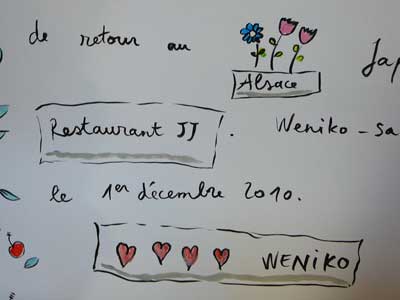 de retour au
Alsace
Jap
Restaurant JJ . Weniko-sa
le 1er décembre 2010.
WENIKO